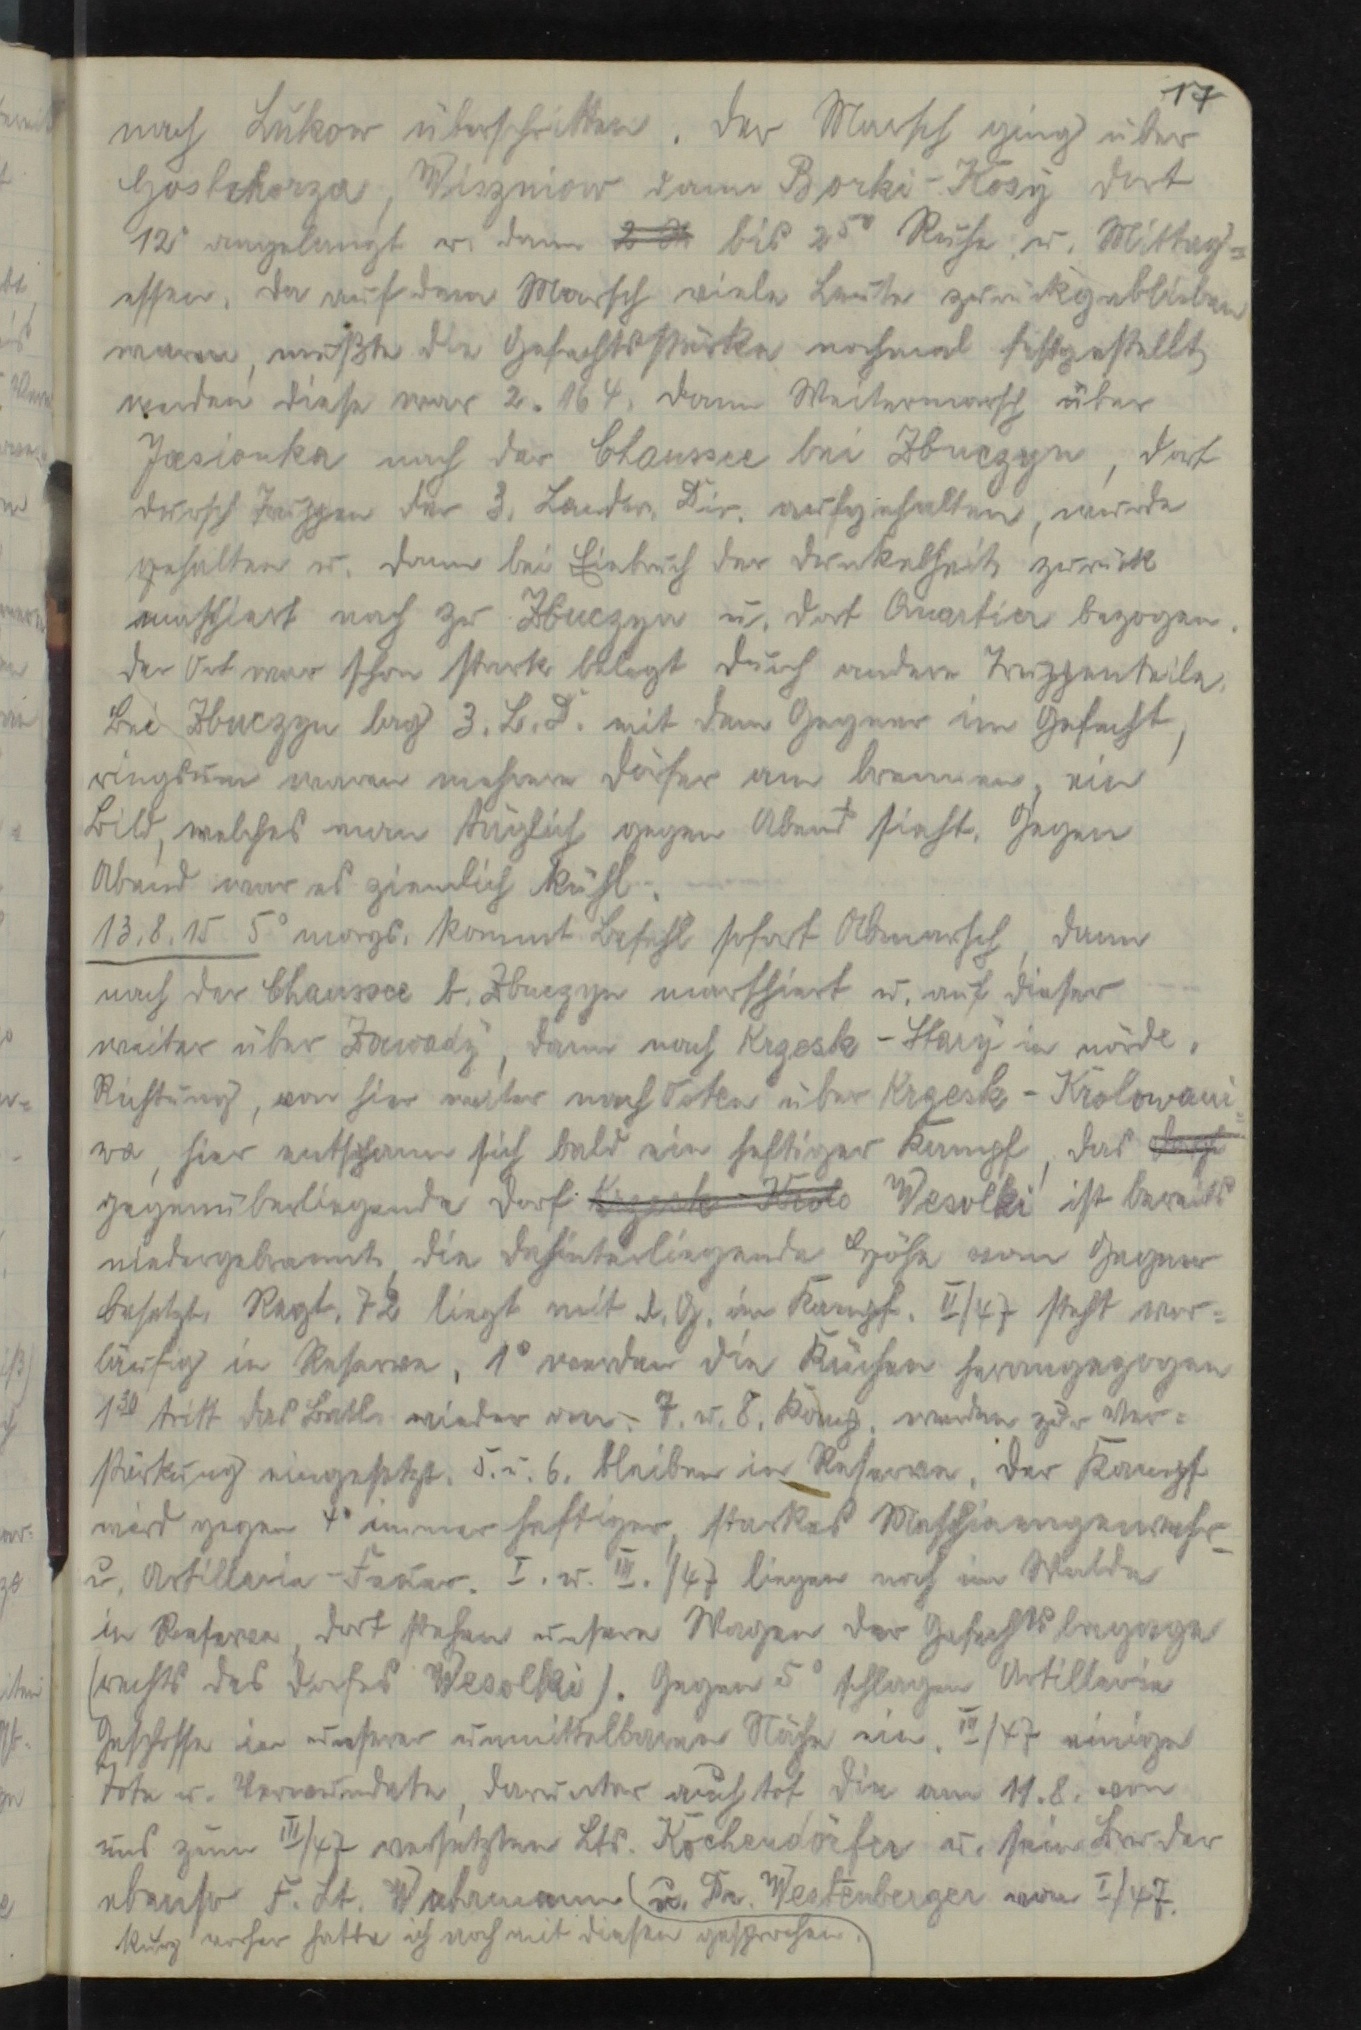 17
nach Lukow überschritten. Der Marsch ging über
Gostchorza, Wiszniow dann Borki-Kosy dort
12° angelangt u. dann bis 2⁵⁰ Ruhe u. Mittag=
essen. Da auf dem Marsch viele Leute zurückgeblieben
waren, mußte die Gefechtsstärke nochmal festgestellt
werden diese war 2.164. Dann Weitermarsch über
Jasionka nach der Chaussee bei Zbuczyn, dort
durch Truppen der 3. Landw. Div. aufgehalten, wurde
gehalten u. dann bei Einbruch der Dunkelheit zurück
maschiert nach zu Zbuczyn u. dort Quartier bezogen.
Der Ort war schon stark belegt durch andere Truppenteile.
Bei Zbuczyn lag 3. L.D. mit dem Gegner im Gefecht,
ringsum waren mehrere Dörfer am brennen, ein
Bild, welches man täglich gegen Abend sieht. Gegen
Abend war es ziemlich kühl.
13.8.15 5° morgs. kommt Befehl sofort Abmarsch, dann
nach der Chaussee b. Zbuczyn marschiert u. auf dieser
weiter über Zawady, dann nach Krzesk-Stary in nördl.
Richtung, von hier weiter nach Osten über Krzesk-Krolowani=
wa, hier entspann sich bald ein heftiger Kampf, das
gegenüberliegende Dorf Wesolki ist bereits
niedergebrannt, die dahinterliegende Höhe vom Gegner
besetzt. Regt. 72 liegt mit d. G. im Kampf. II/47 steht vor=
läufig in Reserve, 1° werden die Küchen herangezogen
1³⁰ tritt das Batl. wieder an. 7. u. 8. Komp. werden zur Ver=
stärkung eingesetzt. 5. u. 6. bleiben in Reserve. Der Kampf
wird gegen 4° immer heftiger, starkes Maschinengewehr-
u. Artillerie-Feuer. I. u. III./47 liegen noch im Walde
in Reserve, dort stehen unsere Wagen der Gefechtsbagage
(rechts des Dorfes Wesolki). Gegen 5° schlagen Artillerie
Geschosse in unserer unmittelbaren Nähe ein. III/47 einige
Tote u. Verwundete, darunter auch tot die am 11.8. von
uns zum III/47 versetzten Lts. Kochendörfer u. sein Bruder
ebenso F. Lt. (u. Dr. Westenberger von I/47.
kurz vorher hatte ich noch mit diesen gesprochen.